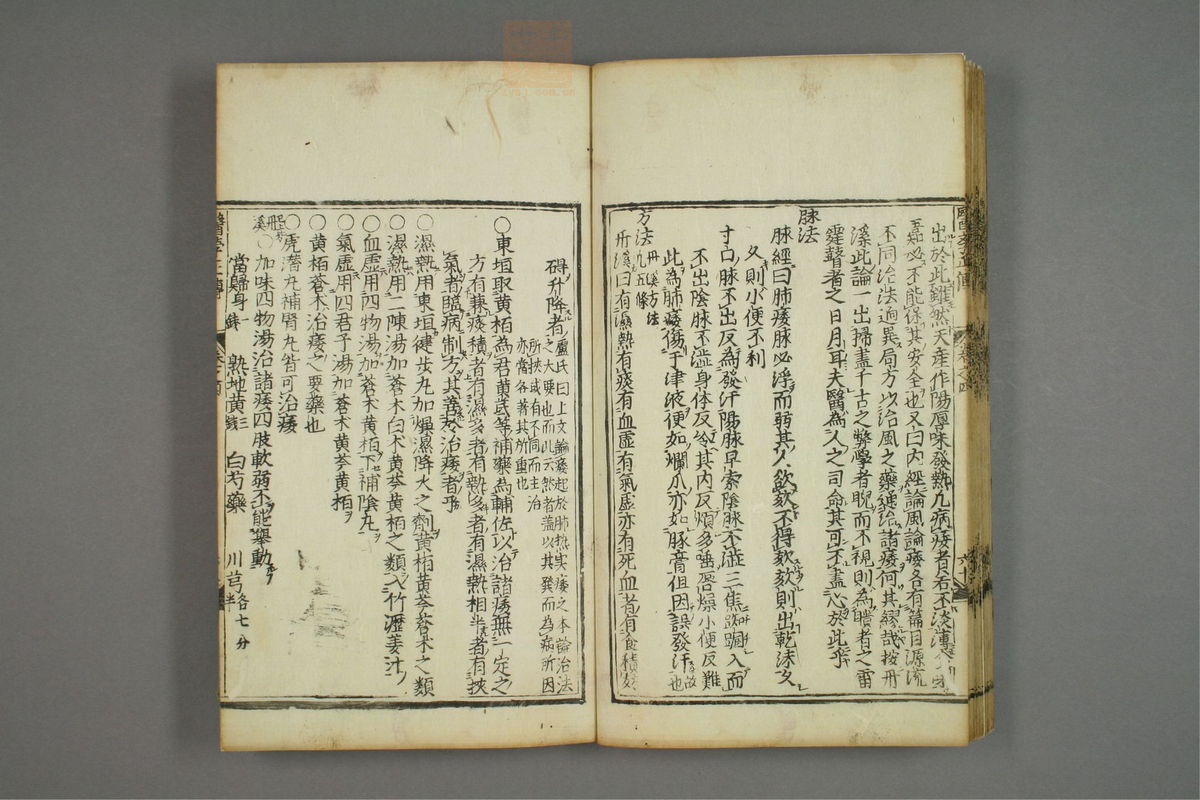 出於此雖然天產作陽厚味發熱凡病痿者若不淡薄
嘉必不能保其安全也又曰內經論風論痿各有篇目源流
不同治法迥異局方以治風之藥通治諸痿何其繆哉按丹
溪此論一出掃盡千古之弊學者睨而不視則為瞶者之雷
霆瞽者之日月耳夫醫為人之司命其可不盡心於此乎
脉法
脉經曰肺痿脉必浮而弱其人欲欬不得欬欬則出乾沫久
久則小便不利
寸口脉不出反為發汗陽脉早索陰脉不澁三焦踟蹰入而
不出陰脉不澁身体反冷其內反煩多唾唇燥小便反難
此為肺痿傷于津液便如爛爪亦如豚膏但因誤發汗故也
方法丹溪方法凡五條
丹溪曰有濕熱有痰有血虛有氣虛亦有死血者有食積妨
碍升降者盧氏曰上文論痿起於肺熱実痿之本論治法
之大要也而此云然者蓋以其巽而為病所因
所挾或有不同而主治
亦當各著其所重也
○東垣取黃栢為君黃芪等補藥為輔佐以治諸痿無一定之
方有兼痰積者有濕多者有熱多者有濕熱相半者有挾
氣者臨病制方其善於治痿者乎
○濕熱用東垣健步丸加燥濕降火之劑黃栢黃芩蒼朮之類
○濕熱用二陳湯加蒼朮白朮黃芩黃栢之類入竹瀝姜汁
○血虛用四物湯加蒼朮黃栢下補陰丸
○氣虛用四君子湯加蒼朮黃芩黃栢
○黃栢蒼朮治痿之要藥也
○虎潛丸補腎丸皆可治痿
丹溪○加味四物湯治諸痿四肢軟弱不能舉動
當歸身一錢 熟地黃三錢 白芍藥 川芎各七分半